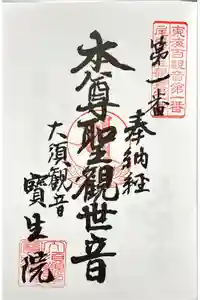 東海百観音第一番
第一番
奉納経
本尊聖觀世音
大須観音
寶生院